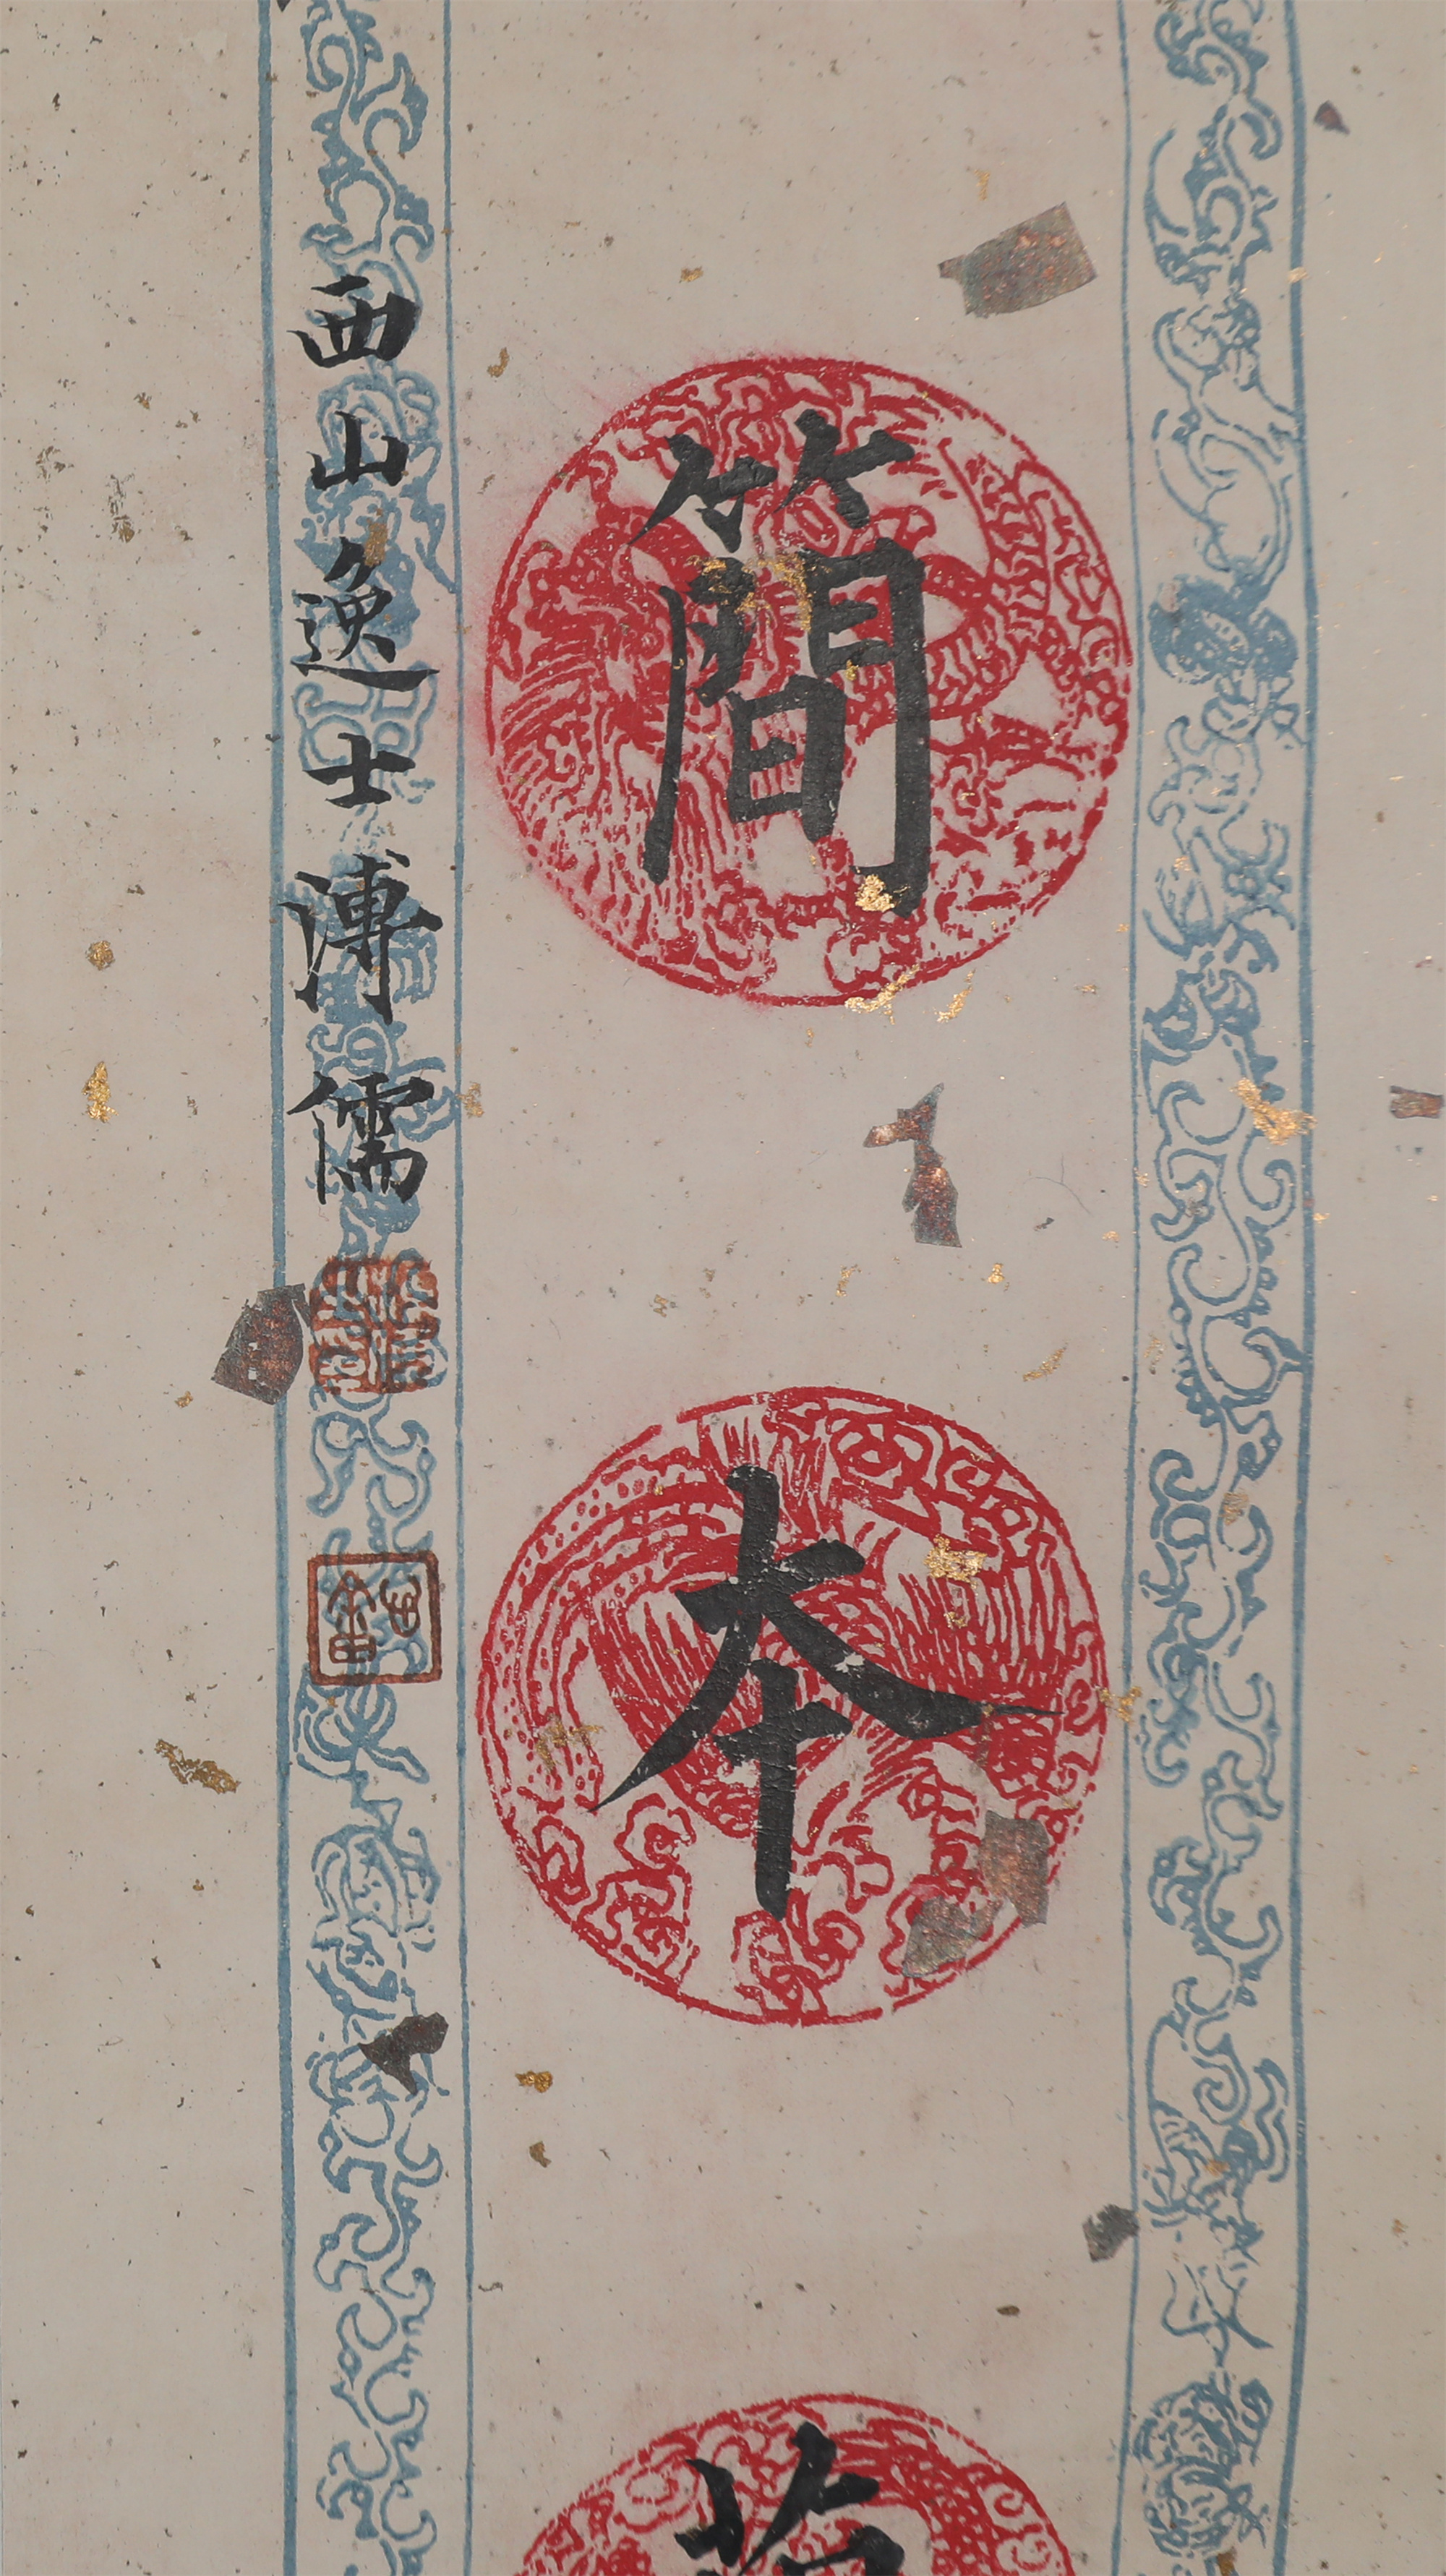 簡本
西山逸士溥儒
心畬